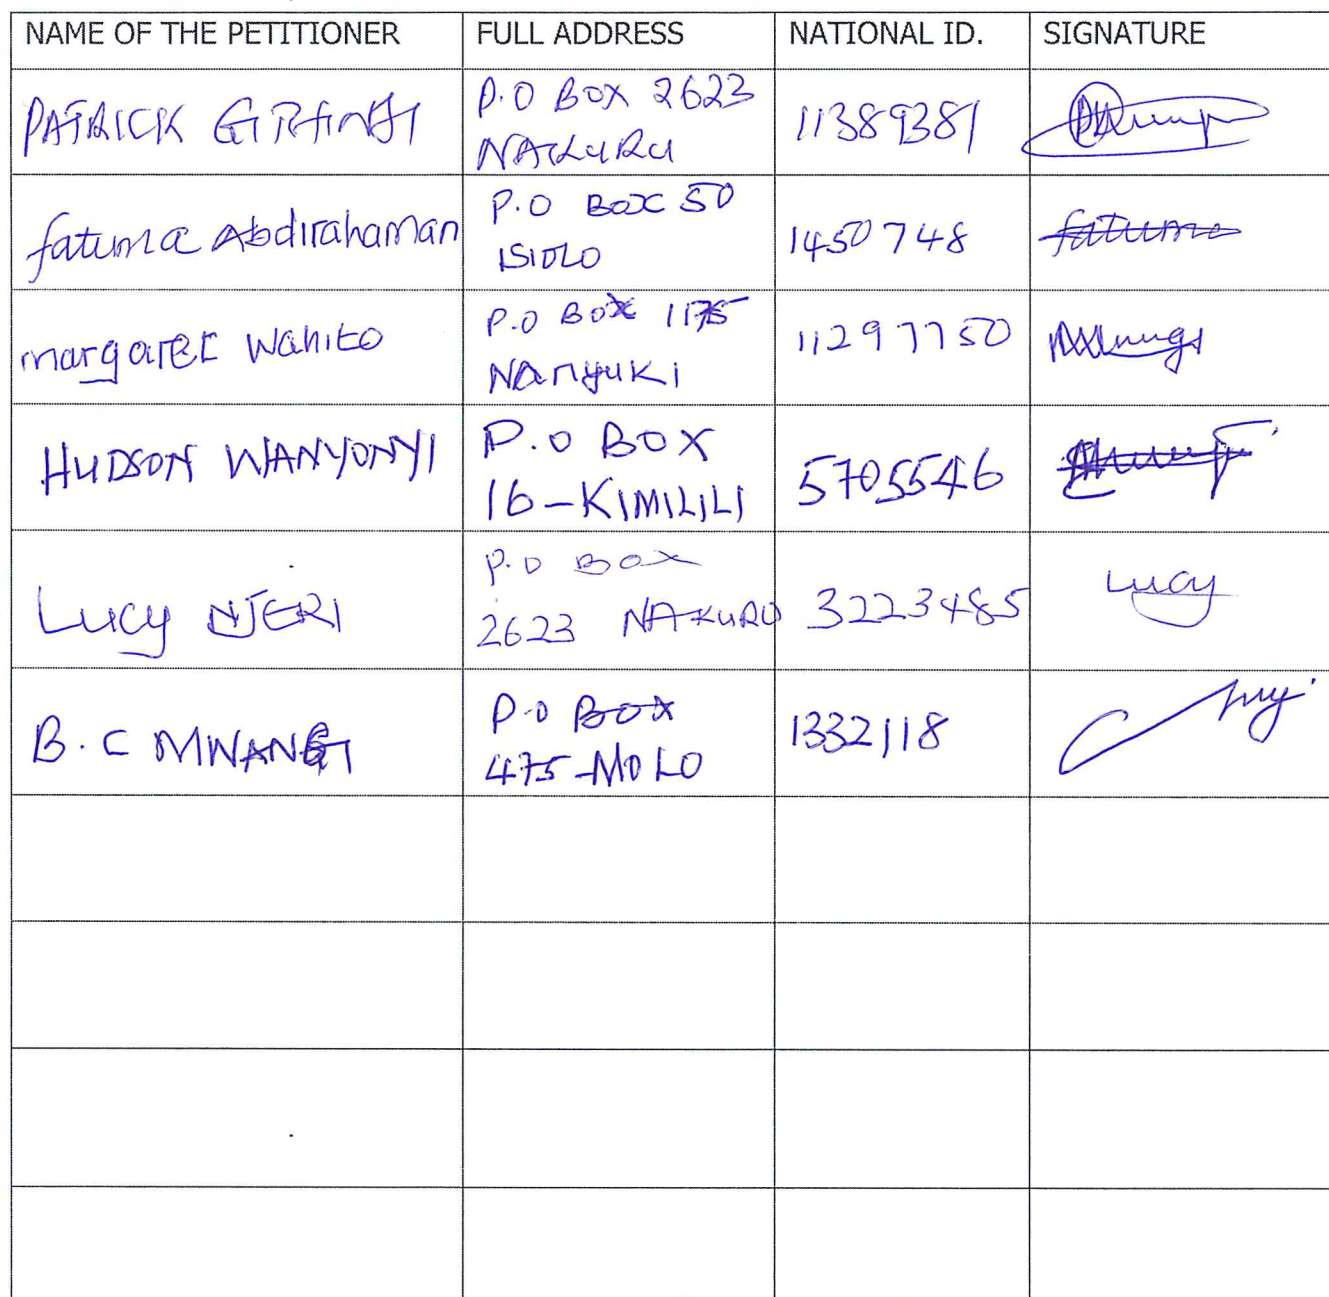 NAME OF THE PETITIONER FULL ADDRESS NATIONAL ID. SIGNATURE
PATRICK P.O BOX 2623
NAKURU 11389381
fatuma Abdirahaman P.O BOX 50
ISIOLO 1450748 fatuma
margaret Wahito P.O BOX 1175
NANYUKI 11297750
HUDSON WANYONYI P.O BOX
16-KIMILILI 5705546
LUCY NJERI P.O BOX
2623 NAKURU 3223485 Lucy
B.C MWANGI P.O BOX
475-MOLO 1332118